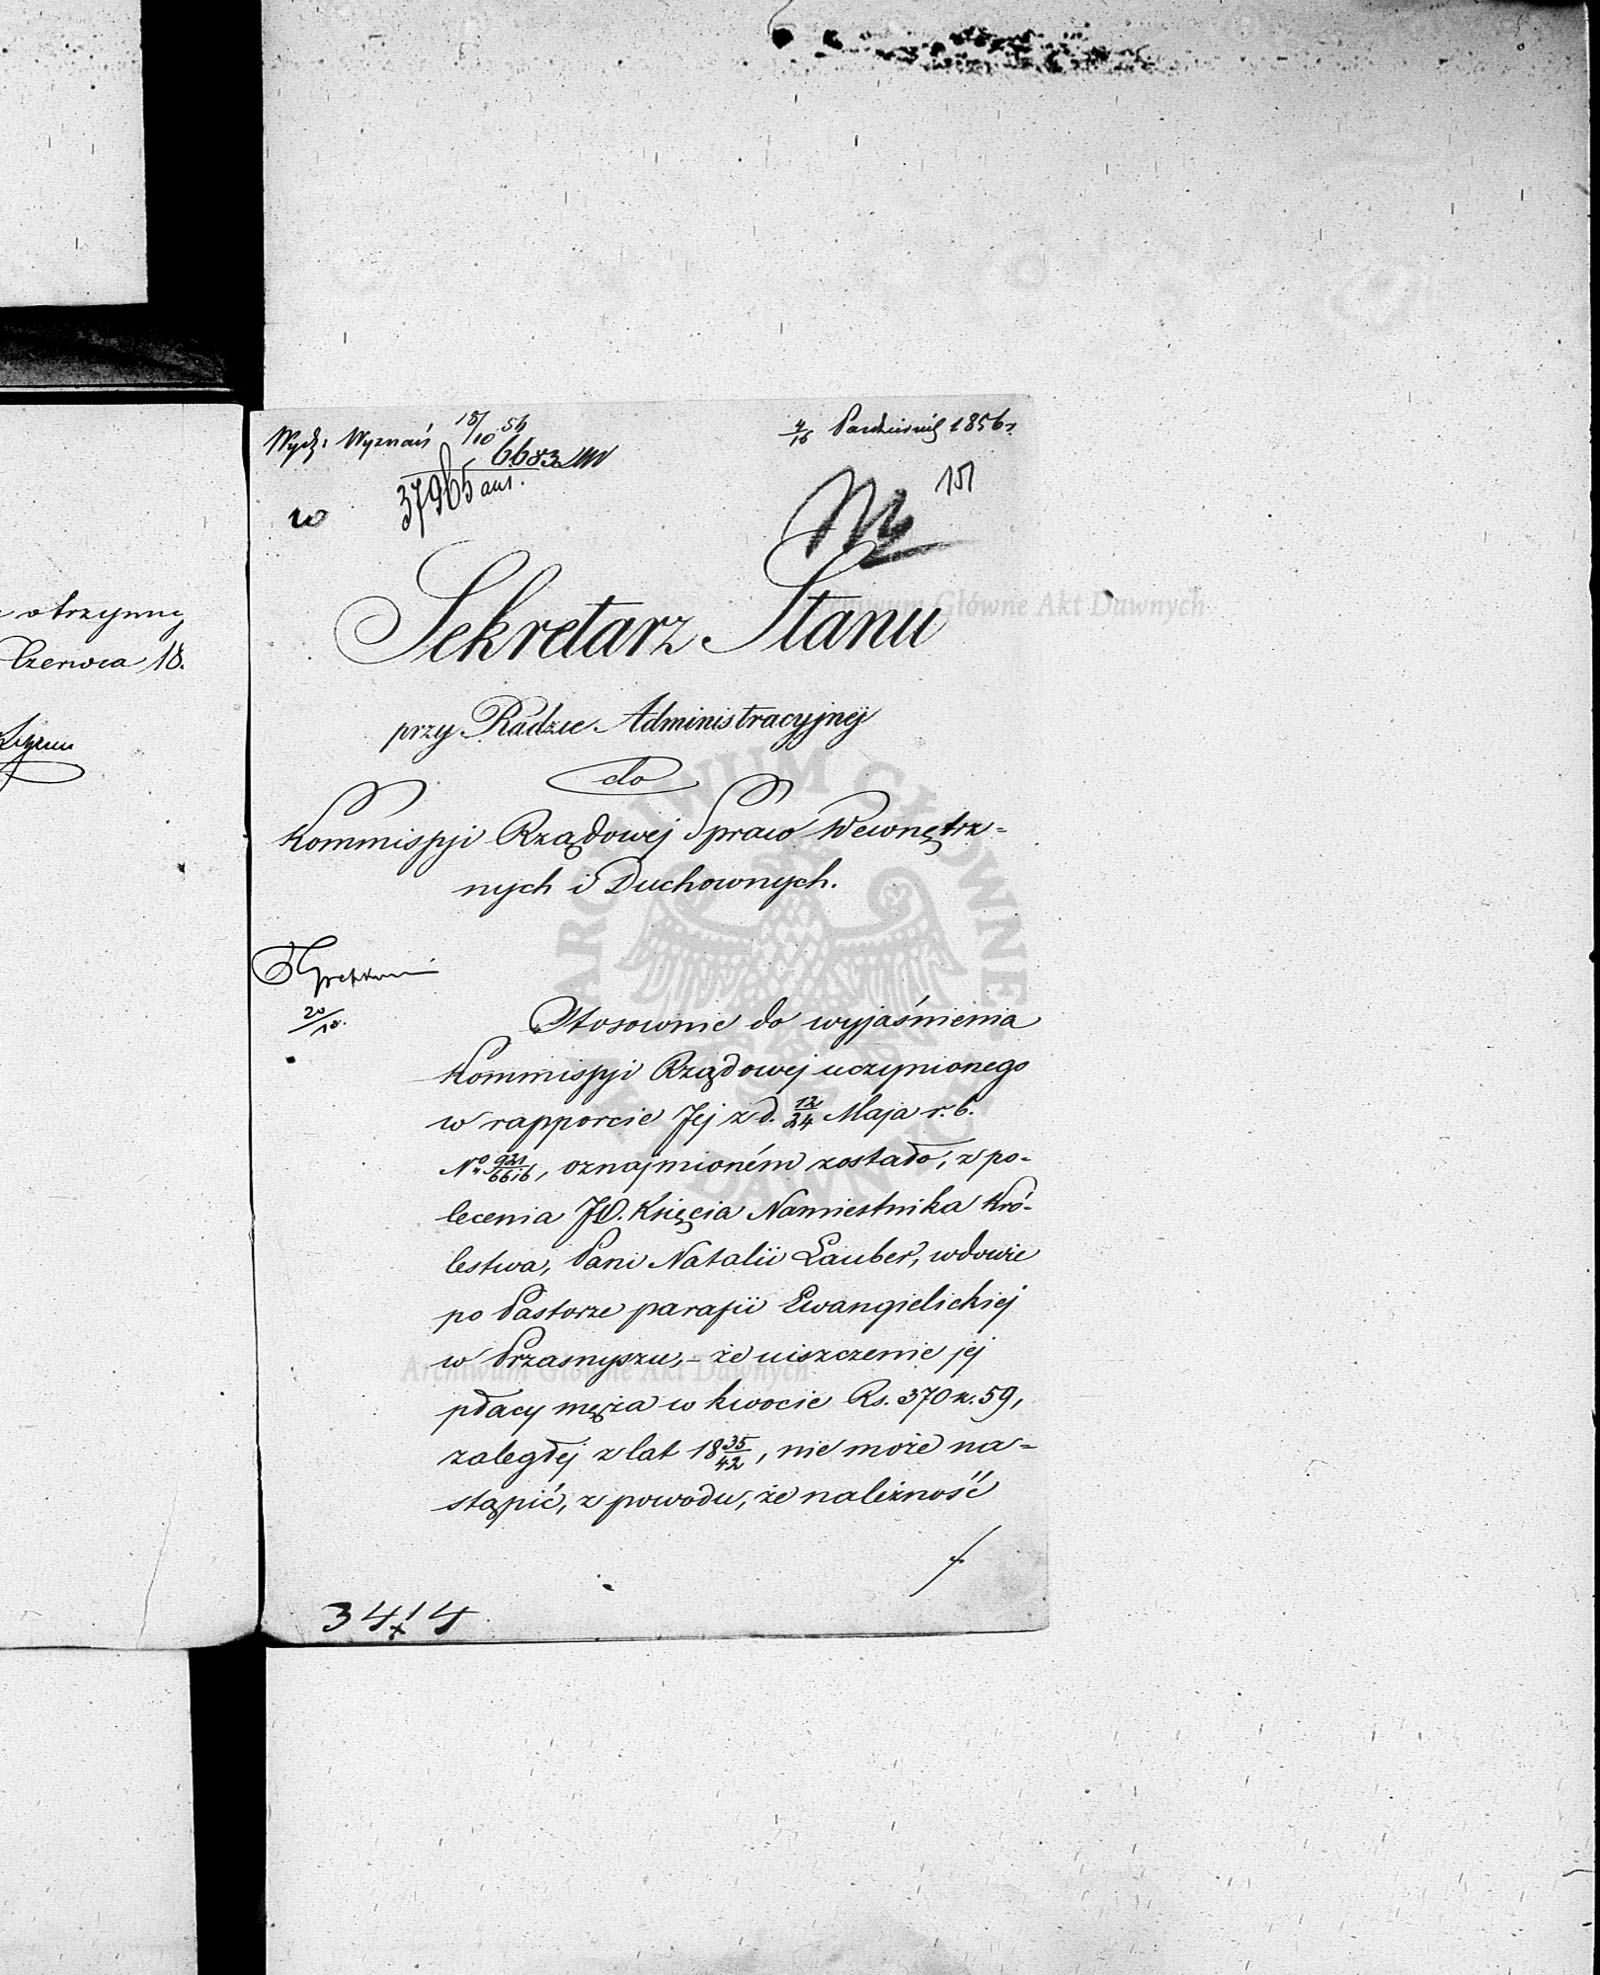 otrzymy
Czerwca 18.
Wydz: Wyznań 18/10 56
6683
37965
4/16 Październik 1856 r.
151
Sekretarz Stanu
przy Radzie Administracyjnej
do
Kommissyi Rządowej Spraw Wewnętrz=
nych i Duchownych.
20/10.
Stosownie do wyjaśnienia
Kommissyi Rządowej uczynionego
w rapporcie Jej z d. 12/24 Maja r. b.
No 921/6616, oznajmioném zostało, z po-
lecenia JO. Księcia Namiestnika Kró-
lestwa, Pani Natalii Lauber, wdowie
po Pastorze parafii Ewangielickiej
w Przasnyszu, – że uiszczenie jej
płacy męża w kwocie Rs. 370 k. 59,
zaległej z lat 18 35/42, nie może na=
stąpić, z powodu, że należność
3414
Archiwum Główne Akt Dawnych
Archiwum Główne Akt Dawnych
ARCHIWUM GŁÓWNE AKT DAWNYCH W